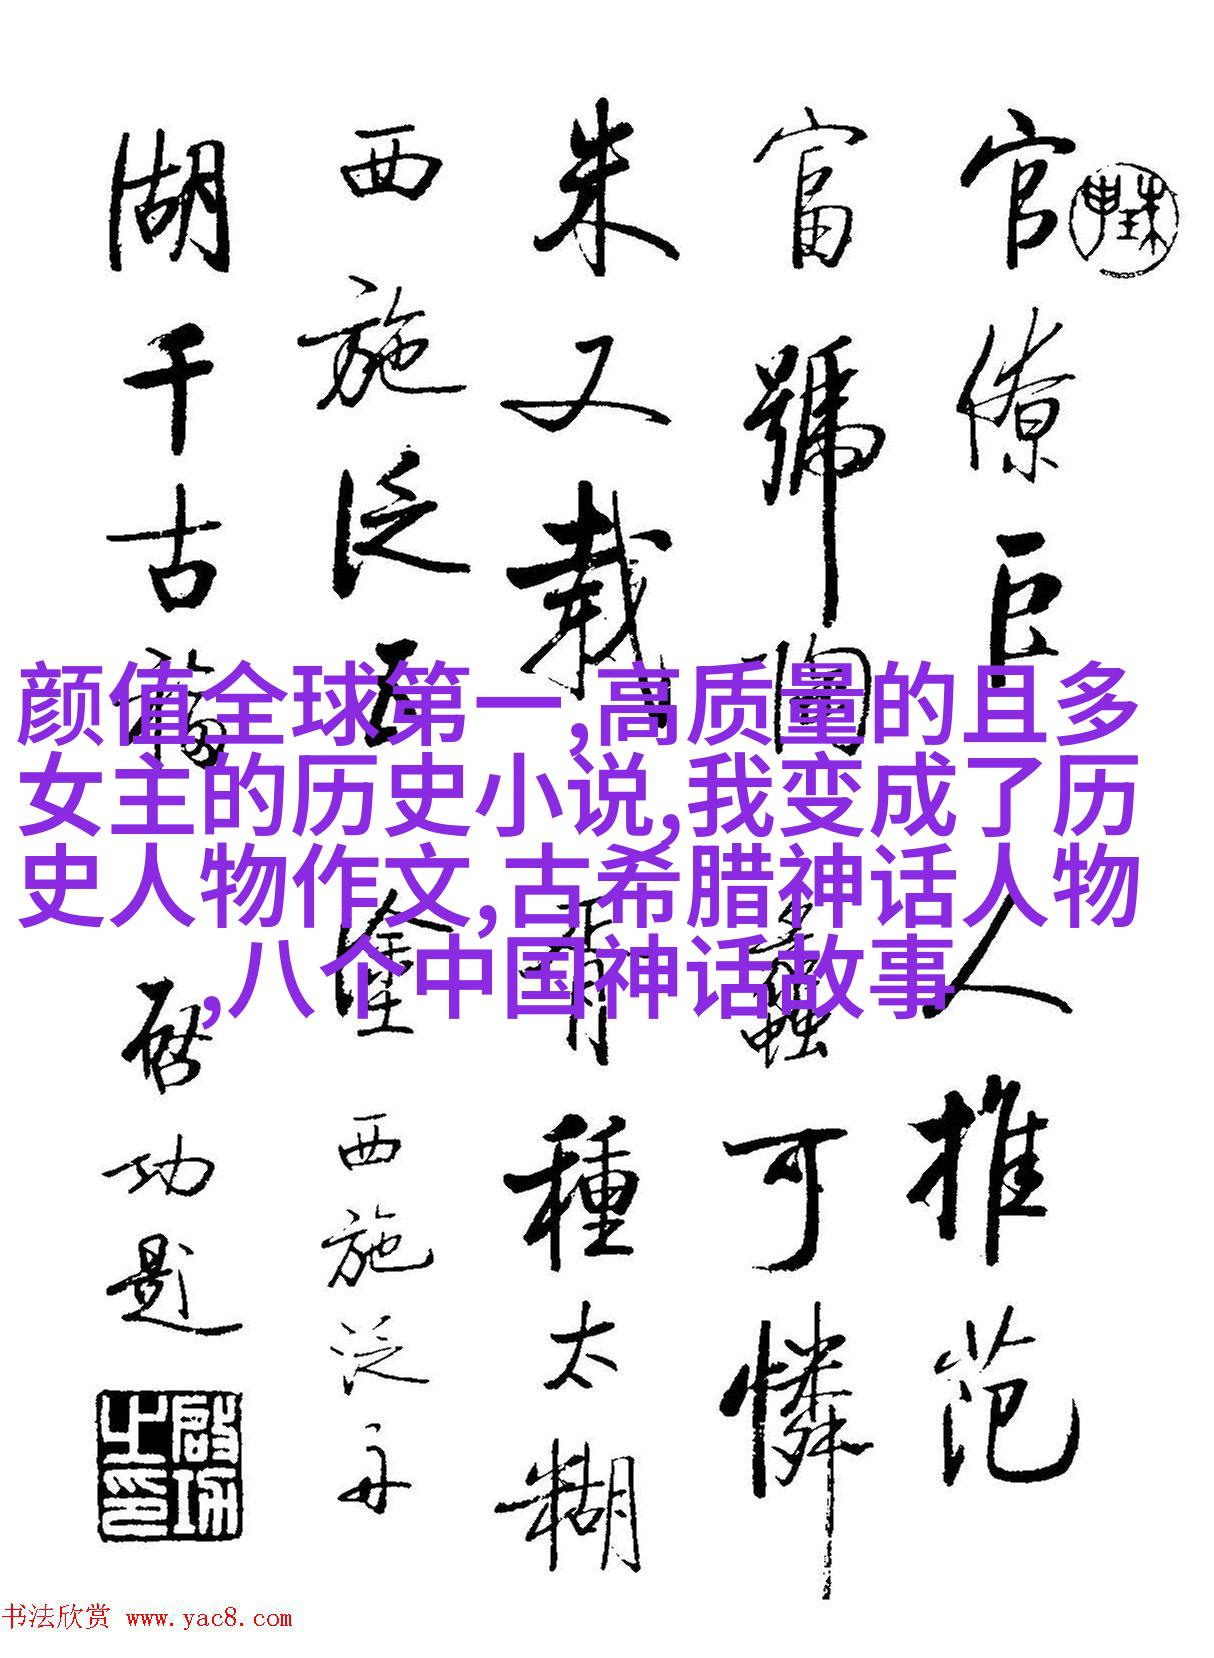 珠申
官僚巨
富號陶
朱又載
西施泛五
湖千古
人推范
蠡可憐
胥種太糊
塗
西施泛舟
啟功題
啟功之印
颜值全球第一,高质量的且多
女主的历史小说,我变成了历
史人物作文,古希腊神话人物
,八个中国神话故事
书法欣赏 www.yac8.com